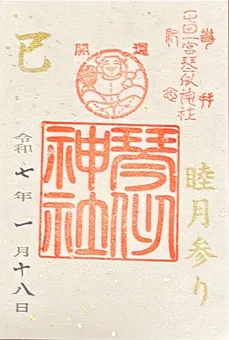 奉拝
七田一宮琴似神社
祈念
開運
琴似
神社
睦月参り
巳
令和七年一月十八日